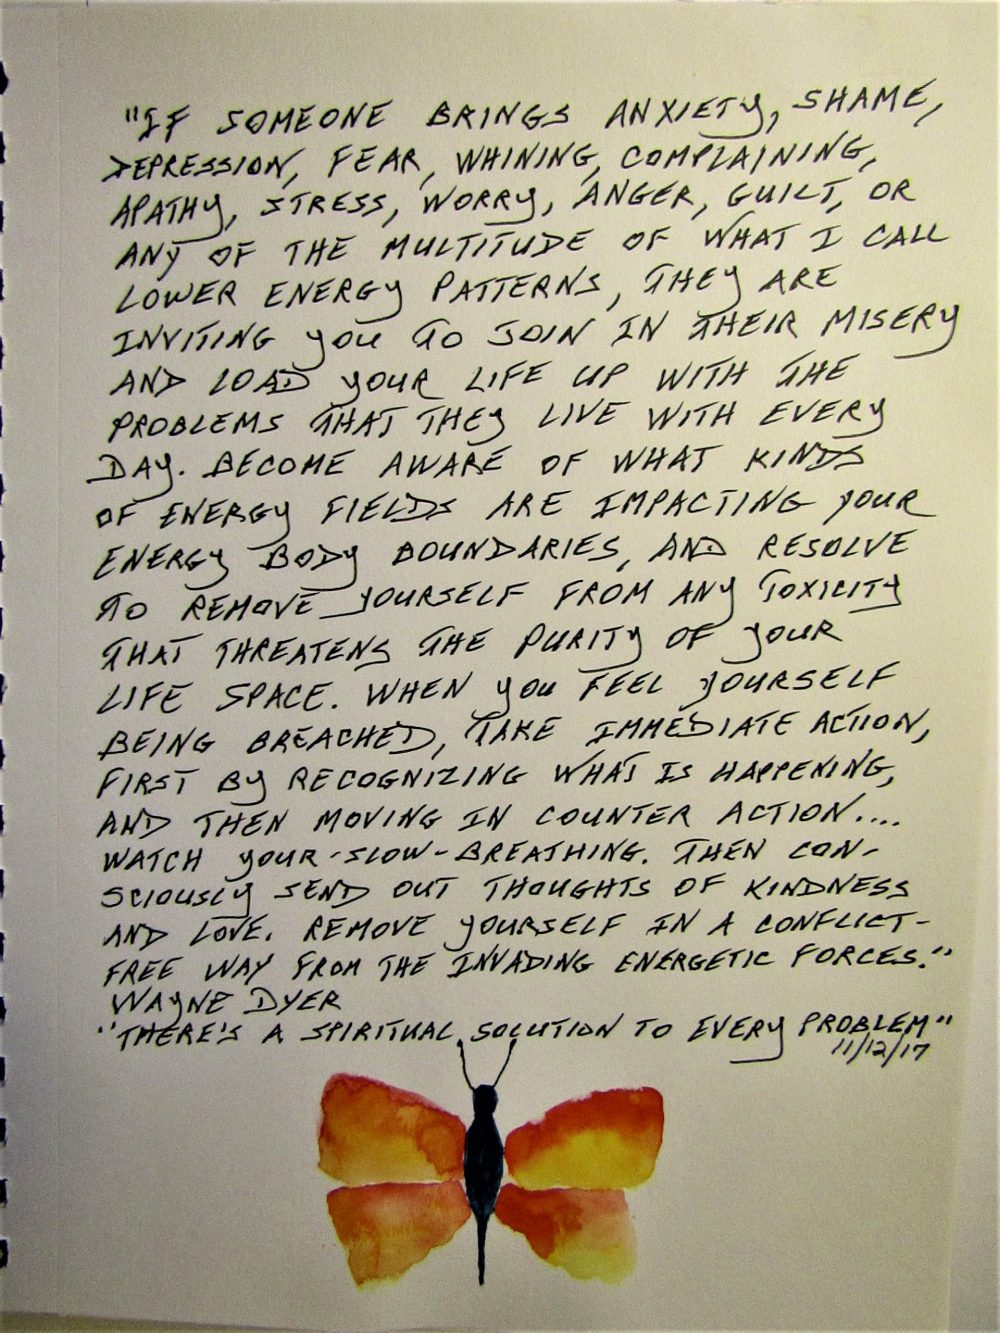 "IF SOMEONE BRINGS ANXIETY, SHAME,
DEPRESSION, FEAR, WHINING, COMPLAINING,
APATHY, STRESS, WORRY, ANGER, GUILT, OR
ANY OF THE MULTITUDE OF WHAT I CALL
LOWER ENERGY PATTERNS, THEY ARE
INVITING YOU TO JOIN IN THEIR MISERY
AND LOAD YOUR LIFE UP WITH THE
PROBLEMS THAT THEY LIVE WITH EVERY
DAY. BECOME AWARE OF WHAT KINDS
OF ENERGY FIELDS ARE IMPACTING YOUR
ENERGY BODY BOUNDARIES, AND RESOLVE
TO REMOVE YOURSELF FROM ANY TOXICITY
THAT THREATENS THE PURITY OF YOUR
LIFE SPACE. WHEN YOU FEEL YOURSELF
BEING BREACHED, TAKE IMMEDIATE ACTION,
FIRST BY RECOGNIZING WHAT IS HAPPENING,
AND THEN MOVING IN COUNTER ACTION....
WATCH YOUR-SLOW-BREATHING. THEN CON-
SCIOUSLY SEND OUT THOUGHTS OF KINDNESS
AND LOVE. REMOVE YOURSELF IN A CONFLICT-
FREE WAY FROM THE INVADING ENERGETIC FORCES."
WAYNE DYER
"THERE'S A SPIRITUAL SOLUTION TO EVERY PROBLEM"
11/12/17